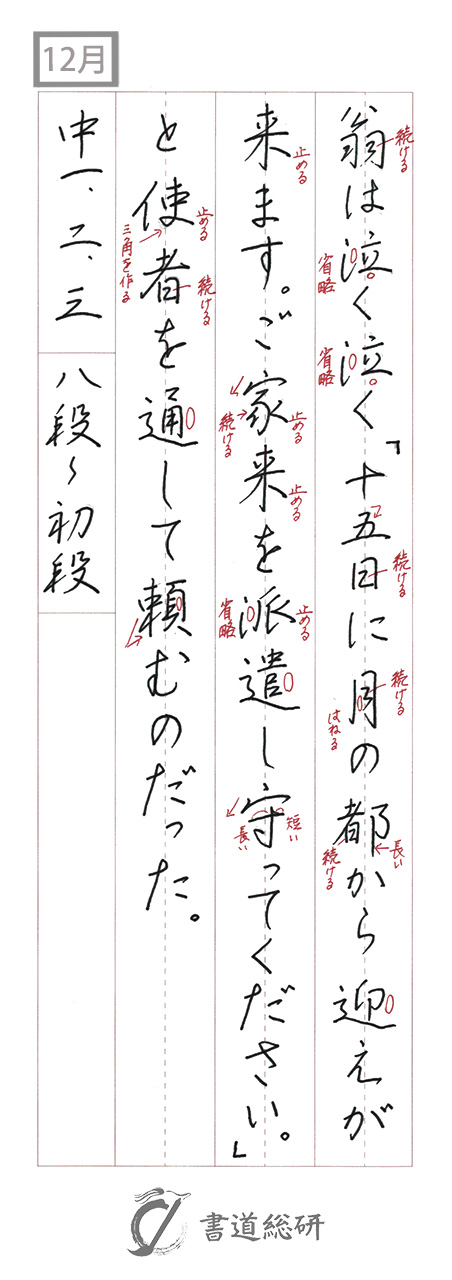 12月
翁は泣く泣く「十五日に月の都から迎えが
続ける
省略
省略
続ける
続ける
はねる
長い
続ける
来ます。ご家来を派遣し守ってください。」
止める
止める
続ける
止める
止める
省略
短い
長い
と使者を通して頼むのだった。
止める
三角を作る
続ける
中一、二、三
八段〜初段
書道総研